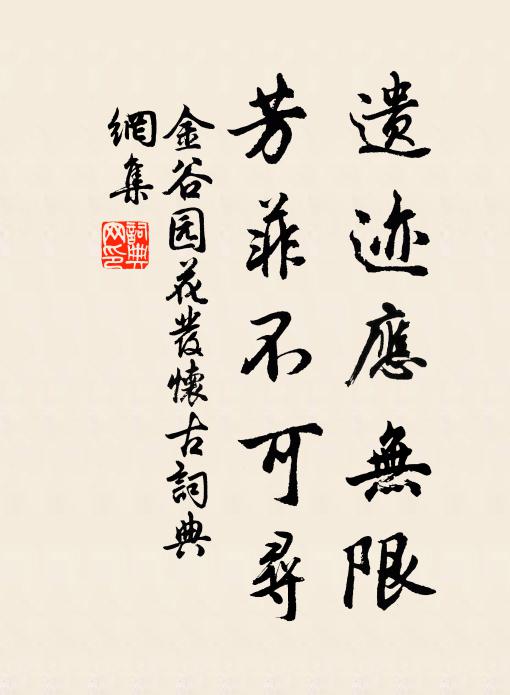 遗迹應無限
芳菲不可尋
金谷园花發懷古詞典
網集
詞典网印